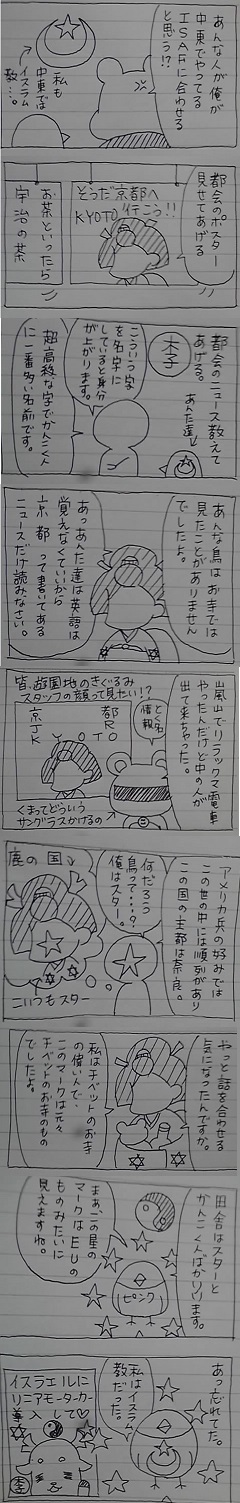 あんな人が俺が
中東でやってる
ISAFに合わせる
と思う!?
私も
中東では
イスラム
教…。
都会のポスター
見せてあげる
そうだ京都へ
KYOTO 行こう!!
お茶といったら
宇治の茶
都会のニュース教えて
あげる。
あんた達
李
こういう字
を名字に
していると身分
が上がります。
超高級な字でかんこく人
に一番多い名前です。
あんな鳥はお寺では
見たことがありません
でしたよ。
あっあんた達は英語は
覚えなくていいから
京都って書いてある
ニュースだけ読みなさい。
嵐山でリラックマ電車
やったんだけど中の人が
出て来ちゃった。
とく名
情報
皆、遊園地のきぐるみ
スタッフの顔って見たい!?
京 都
JR
KYOTO
くまってどういう
サングラスかけるの
アメリカ兵の好みでは
この世の中には順列があり
この国の主都は奈良。
何だろう
鳥って…?
俺はスター。
鹿の国
こいつもスター
やっと話を合わせる
気になったんですか。
私はチベットのお寺
の偉い人で、
このマークは元々
チベットのお寺のもの
でしたよ。
田舎はスターと
かんこく人ばかりいます。
まあ、この星の
マークはEUの
ものみたいに
見えますね。
ピンク
あっ忘れてた。
私はイスラム
教だった。
イスラエルに
リニアモーターカー
導入して
李